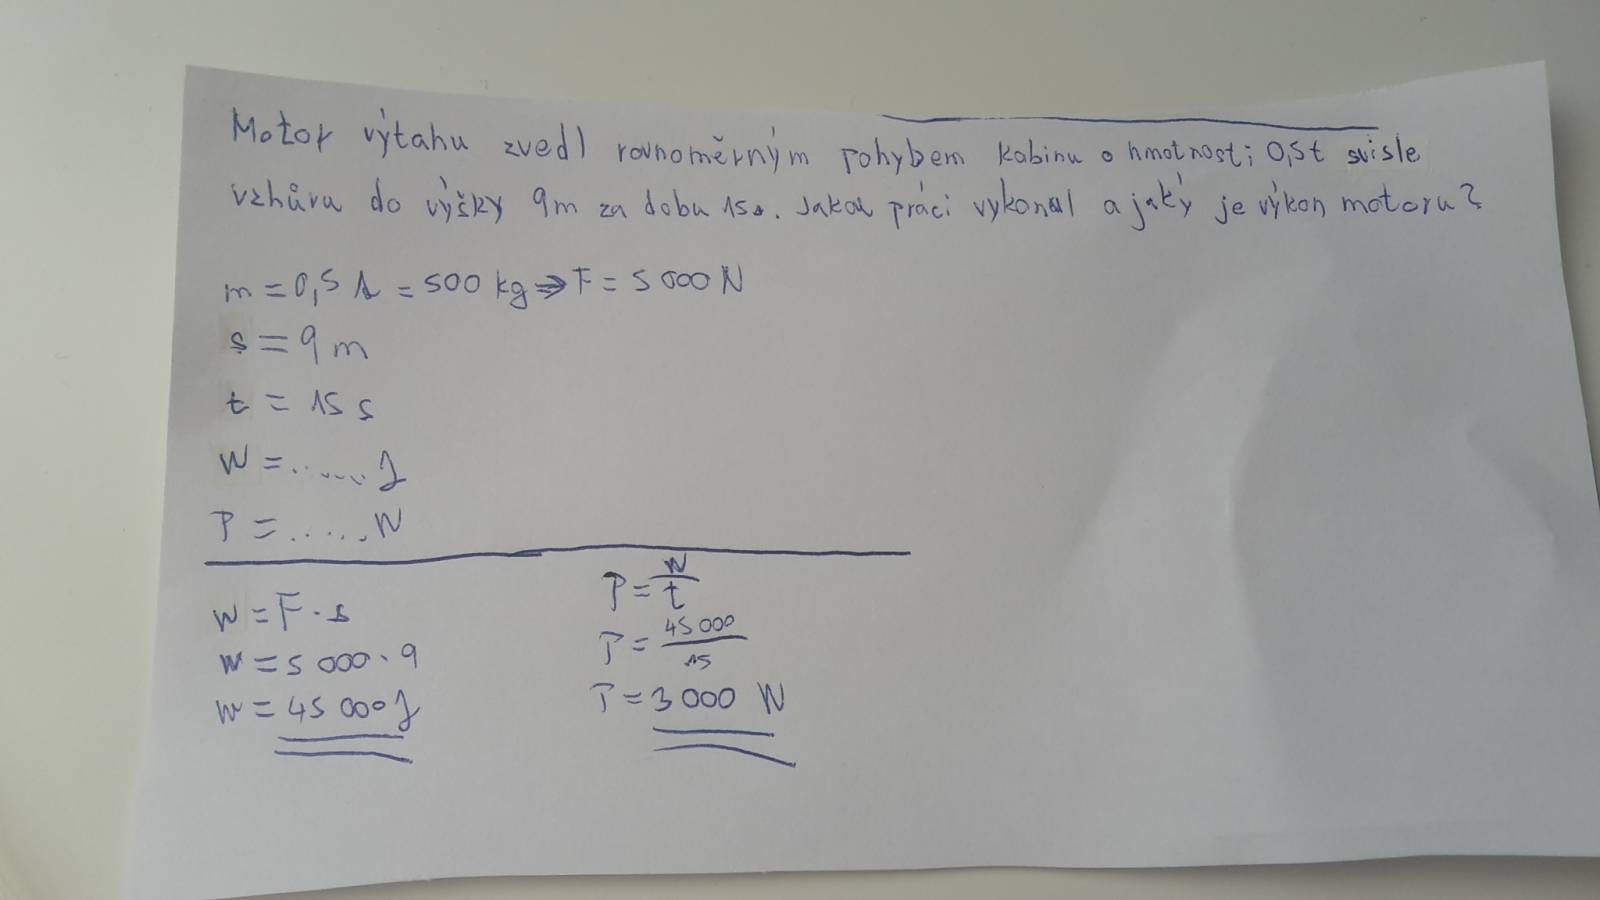 Motor výtahu zvedl rovnoměrným pohybem kabinu o hmotnosti 0,5t svisle
vzhůru do výšky 9m za dobu 15s. Jakou práci vykonal a jaký je výkon motoru?
m = 0,5 t = 500 kg ⇒ F = 5 000 N
s = 9 m
t = 15 s
W = ...... J
P = ...... W
W = F · s
W = 5 000 · 9
W = 45 000 J
P = W/t
P = 45 000/15
P = 3 000 W